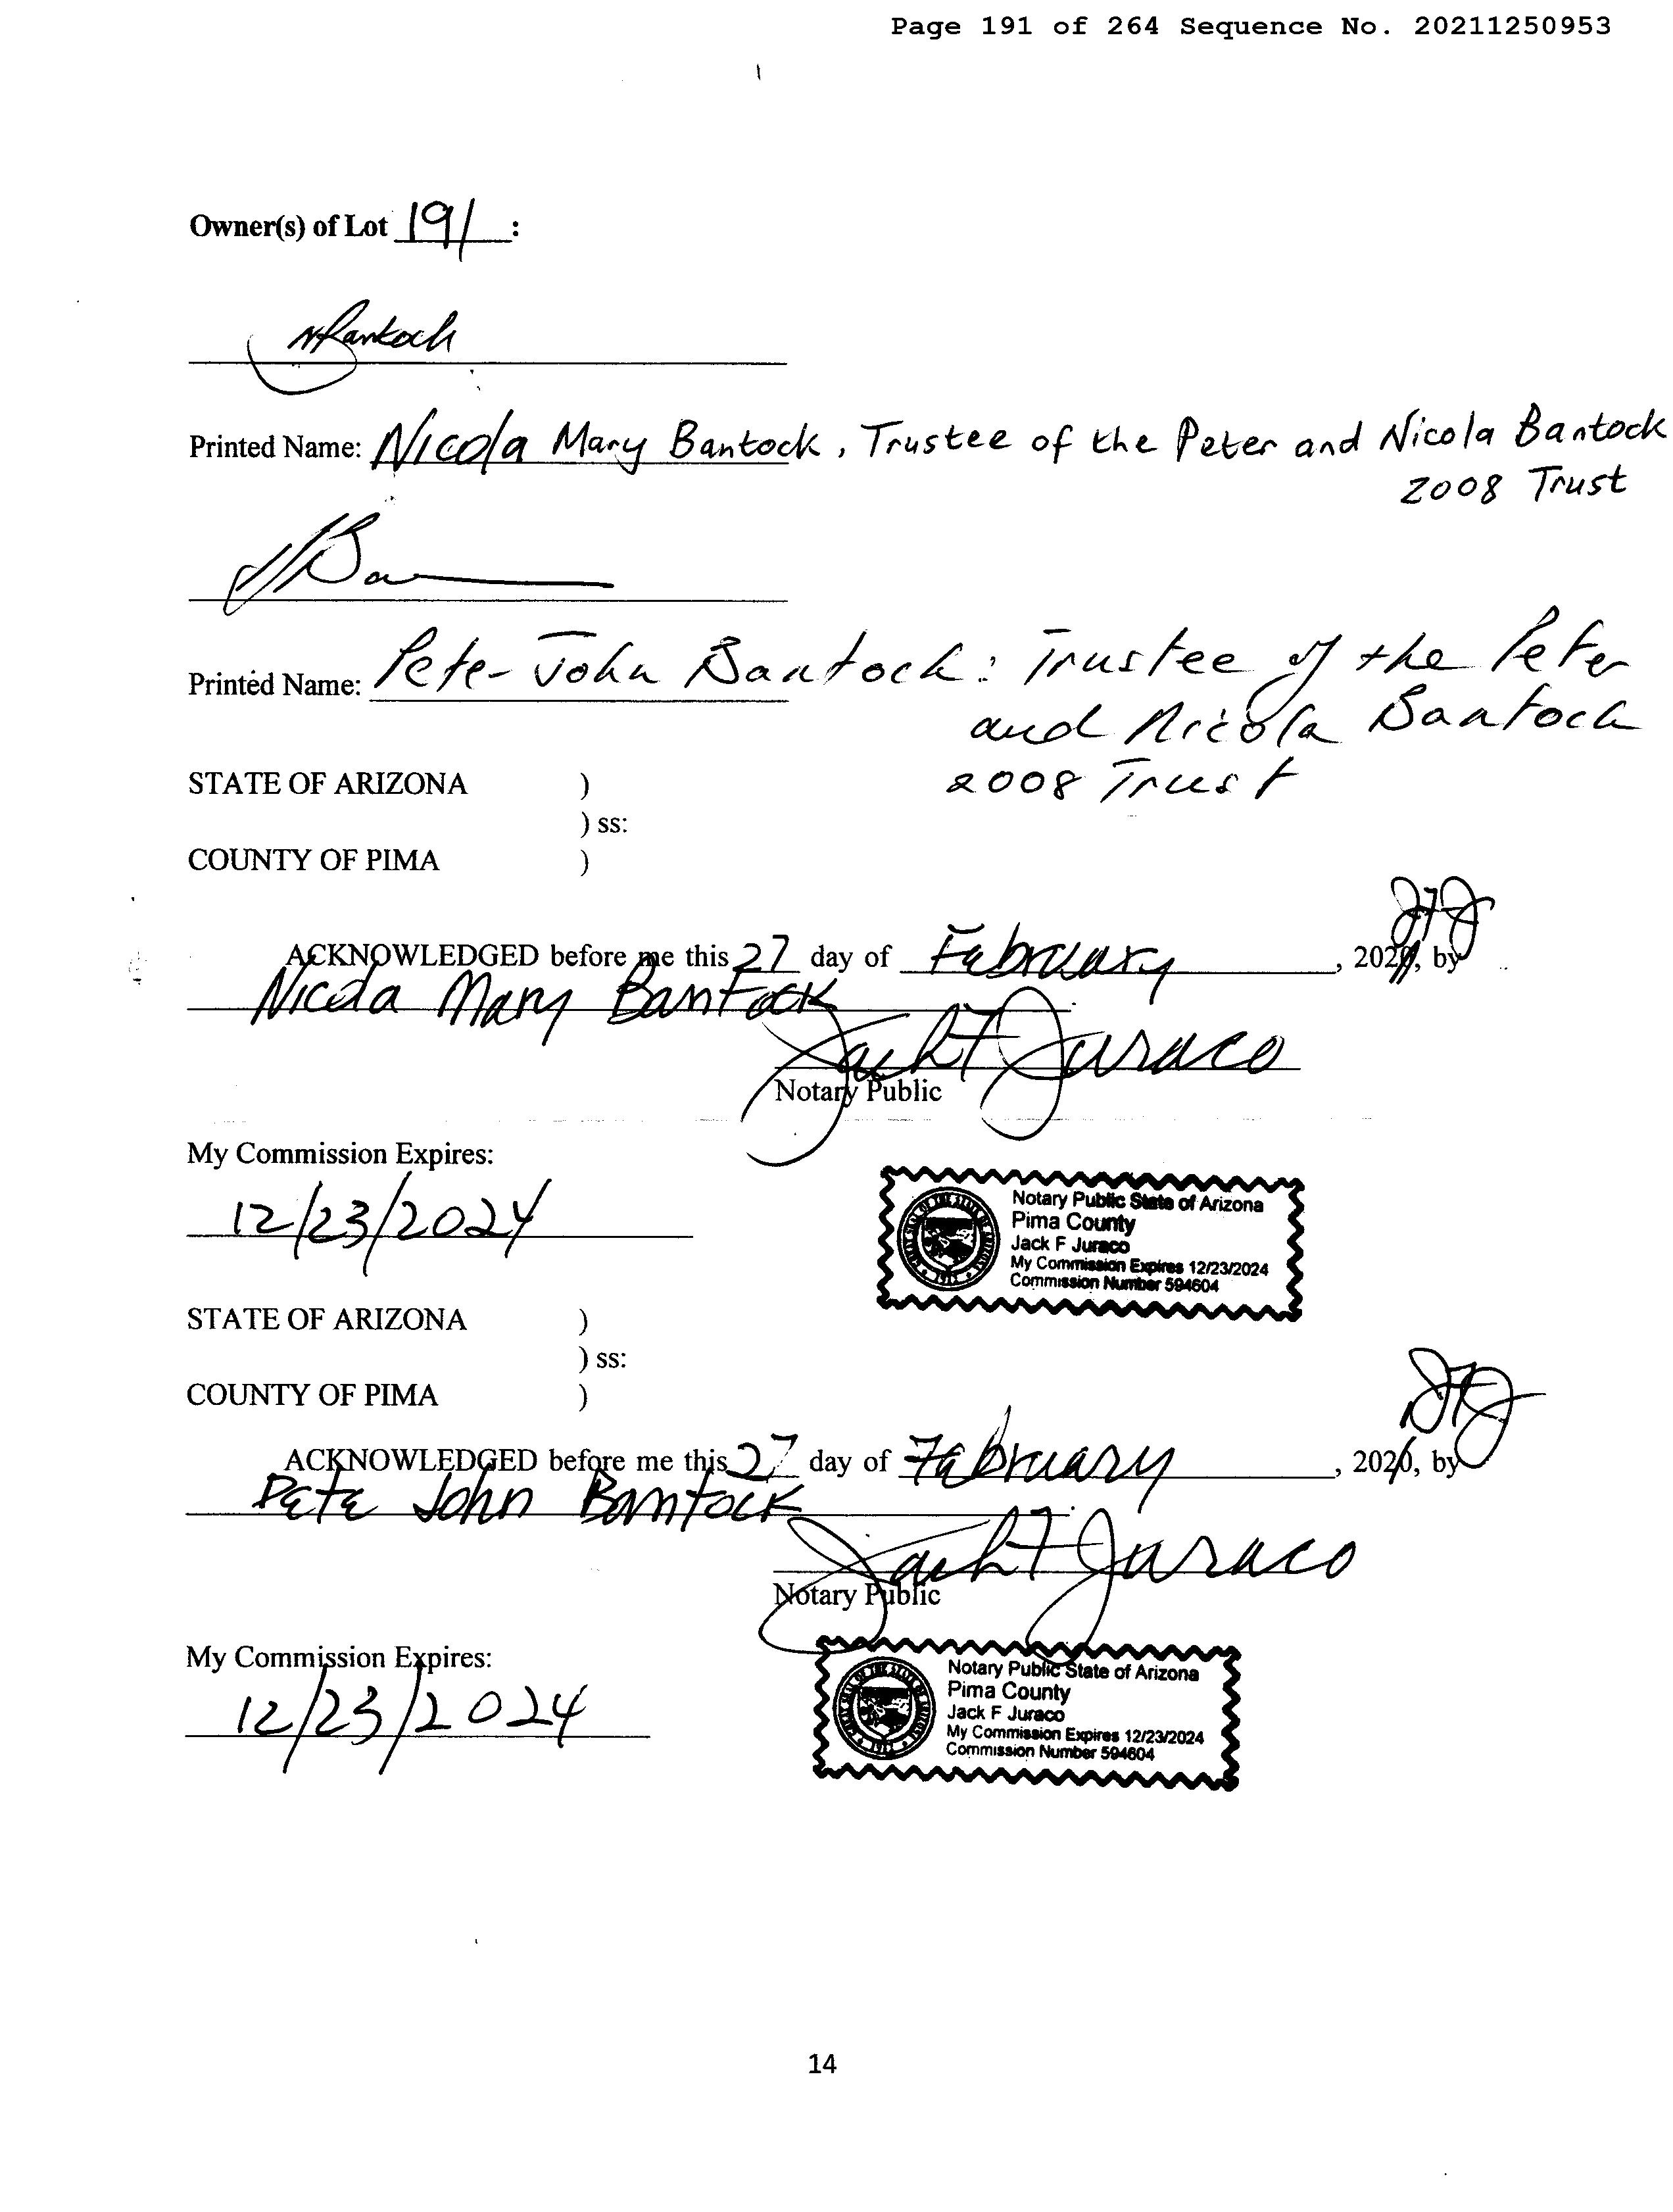 Page 191 of 264 Sequence No. 20211250953
Owner(s) of Lot 191 :
NBantock
Printed Name: Nicola Mary Bantock, Trustee of the Peter and Nicola Bantock
2008 Trust
Printed Name: Peter John Bantock: Trustee of the Peter
and Nicola Bantock
2008 Trust
STATE OF ARIZONA )
) ss:
COUNTY OF PIMA )
JFJ
ACKNOWLEDGED before me this 27 day of February, 202, by
Nicola Mary Bantock
Jack F Juraco
Notary Public
My Commission Expires:
12/23/2024
Notary Public State of Arizona
Pima County
Jack F Juraco
My Commission Expires 12/23/2024
Commission Number 594604
STATE OF ARIZONA )
) ss:
COUNTY OF PIMA )
JFJ
ACKNOWLEDGED before me this 27 day of February, 202, by
Pete John Bantock
Jack F Juraco
Notary Public
My Commission Expires:
12/23/2024
Notary Public State of Arizona
Pima County
Jack F Juraco
My Commission Expires 12/23/2024
Commission Number 594604
14